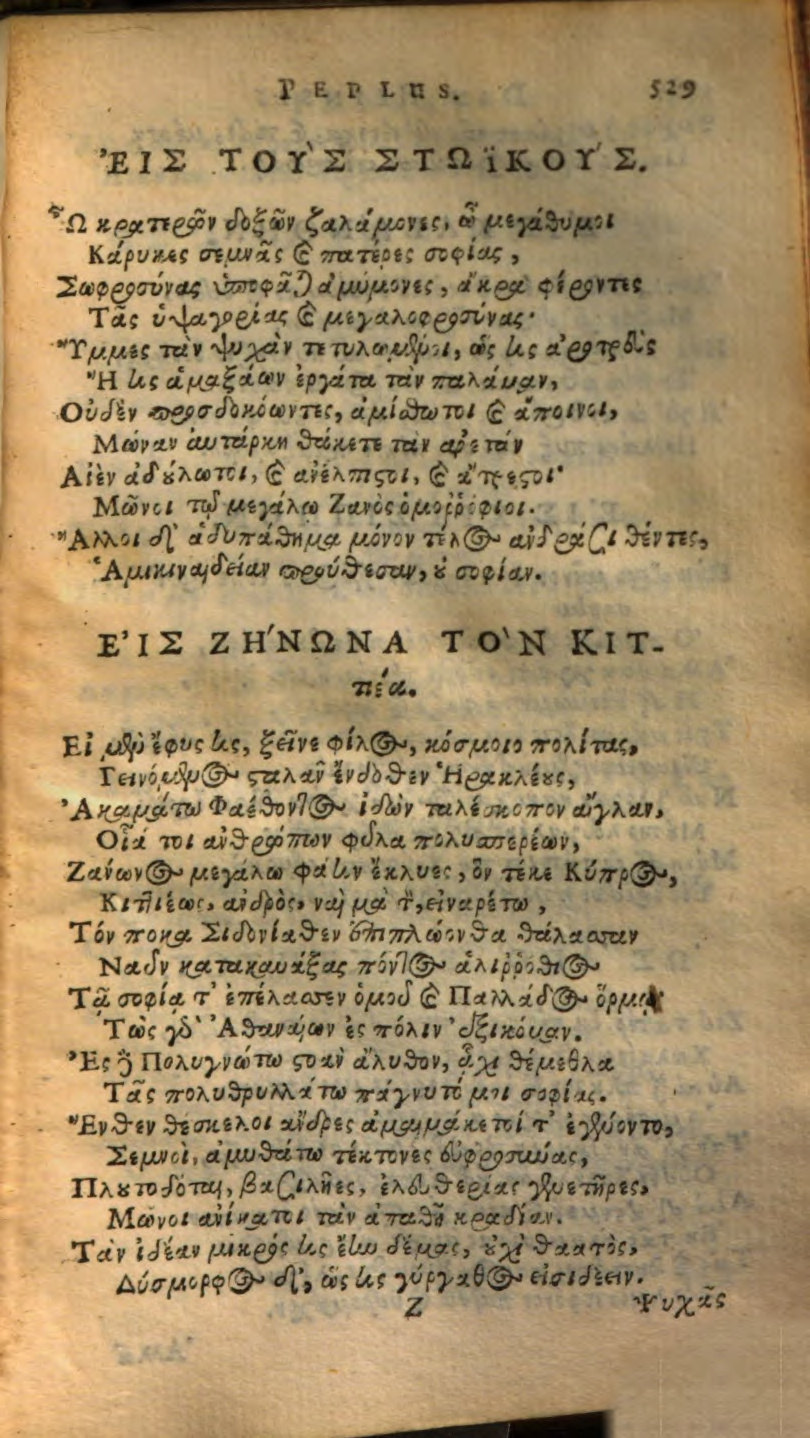 PEPLUS. 529
ἘΙΣ ΤΟῪΣ ΣΤΩΪΚΟΎΣ.
Ὦ κρατερῶν δοξῶν ζαλάμονες, ὦ μεγάθυμοι
Κάρυκες σεμνᾶς καὶ πατέρες σοφίας,
Σωφροσύνας ἀμύμονες, ἄκρα φέροντες
Τᾶς ὑψαγορίας καὶ μεγαλοφροσύνας·
Ὕμμες τὰν ψυχὰν τετυλωμένοι, ὡς τις ἀροτρεὺς
Ἢ τις ἁμαξάων ἐργάτα τὰν παλάμαν,
Οὐδὲν προσδοκόωντες, ἀμίσθωτοι καὶ ἄποινοι,
Μώναν αὐτάρκη θάκετε τὰν ἀρετάν
Αἰὲν ἀδούλωτοι, καὶ ἀνέλπιστοι, καὶ ἄτρεστοι·
Μῶνοι τῶ μεγάλω Ζανὸς ὁμορρόφιοι.
Ἄλλοι δ' ἁδυπάθημα μόνον τέλος ἀνδράσι θέντες,
Ἁμικιναιδείαν προύθεσαν, οὐ σοφίαν.
Ε᾿ΙΣ ΖΉΝΩΝΑ ΤῸΝ ΚΙΤ-
πέα.
Εἰ μὲν ἔφυς τις, ξεῖνε φίλος, κόσμοιο πολίτας,
Γεινόμενος σταλᾶν ἔνδοθεν Ἡρακλέους,
Ἀκαμάτω Φαέθοντος ἰδὼν ταλέσκοπον αἴγλαν,
Οἷά τοι ἀνθρώπων φῦλα πολυσπερέων,
Ζανωνος μεγάλω φάτιν ἔκλυες, ὃν τέκε Κύπρος,
Κιτιέως, ἀνδρὸς, ναὶ μὰ τ', εἰναρέτω,
Τόν ποκα Σιδονίαθεν ἐπιπλώονθα θάλασσαν
Ναῦν κατακαυάξας πόντος ἁλιρρόθιος
Τᾷ σοφίᾳ τ' ἐπέλασσεν ὁμοῦ καὶ Παλλάδος ὅρμῳ
Τὼς γὰρ Ἀθαναίων ἐς πόλιν ἐξικόμαν.
Ἐς δὲ Πολυγνώτω στοὰν ἄλυθον, ᾇχι θέμεθλα
Τᾶς πολυθρυλλάτω πάγνυτό μοι σοφίας.
Ἔνθεν θέσκελοι ἄνδρες ἀμαιμάκετοί τ' ἐγένοντο,
Σεμνοὶ, ἀμυθάτω τέκτονες εὐφροσύνας,
Πλουτοδόται, βασιλῆες, ἐλευθερίας γενετῆρες,
Μῶνοι ἀνίκατοι τὰν ἀπαθῆ κραδίαν.
Τὰν ἰδέαν μικρός τις ἔην δέμας, οὐχὶ θαατὸς,
Δύσμορφος δ', ὥς τις γύργαθος εἰσιδέειν.
Z Ψυχᾶς